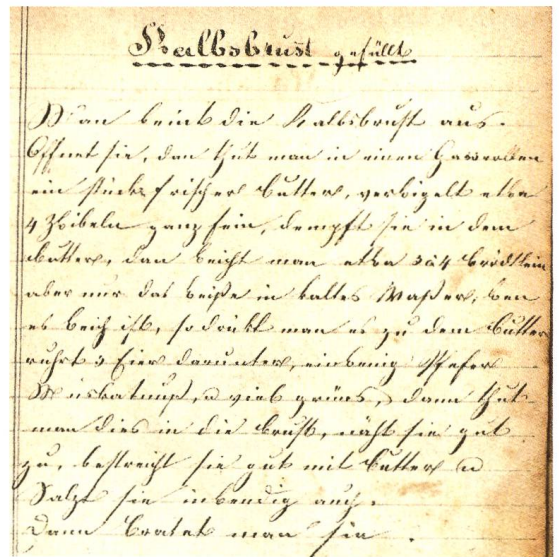 Kalbsbrust gefüllt
Man beint die Kalbsbrust aus.
Öffnet sie, dan thut man in einen Casserollen
ein stückz frischer Butter, verwigelt etwa
4 Zwibeln ganz fein, dempft sie in dem
Butter, dan weicht man etwa 3 à 4 brödtlein
aber nur das weiße in kaltes Waßer, wen
es weich ist, so drükt man es zu dem Butter
ruhrt 3 Eier darunter, ein wenig Pfefer
Muskatnuß, u viel grünes, dann thut
man dies in die brust, näht sie gut
zu, bestreicht sie gut mit Butter u
Salzt sie inwendig auch.
Dann bratet man sie.